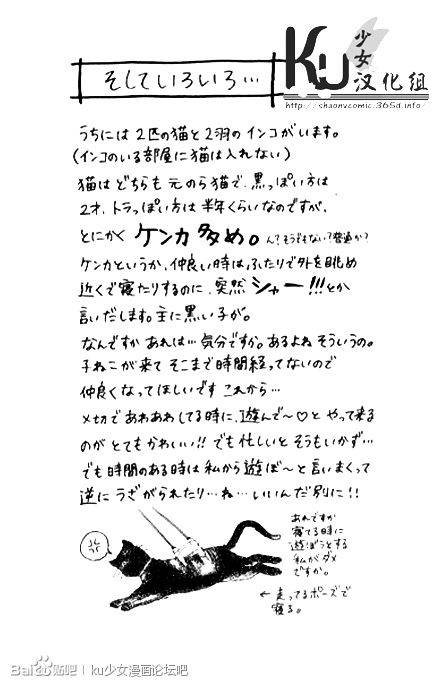 そしていろいろ…
Ku
少女
汉化组
http://shaonvcomic.365d.info
うちには2匹の猫と2羽のインコがいます。
(インコのいる部屋に猫は入れない)
猫はどちらも元のら猫で、黒っぽい方は
2才、トラっぽい方は半年くらいなのですが、
とにかくケンカ多め。ん?そうでもない?普通か?
ケンカというか、仲良い時はふたりで外を眺め
近くで寝たりするのに、突然シャー!!!とか
言いだします。主に黒い子が。
なんですかあれは…気分ですか。あるよねそういうの。
子ねこが来てそこまで時間経ってないので
仲良くなってほしいですこれから…
〆切であわあわしてる時に、遊んで〜♡とやって来る
のがとてもかわいい!!でも忙しいとそうもいかず…
でも時間のある時は私から遊ぼ〜と言いまくって
逆にうざがられたり…ね…いいんだ別に!!
あれですか
寝てる時に
遊ぼうとする
私がダメ
ですか。
←走ってるポーズで
寝る。
Bai 贴吧 | ku少女漫画论坛吧